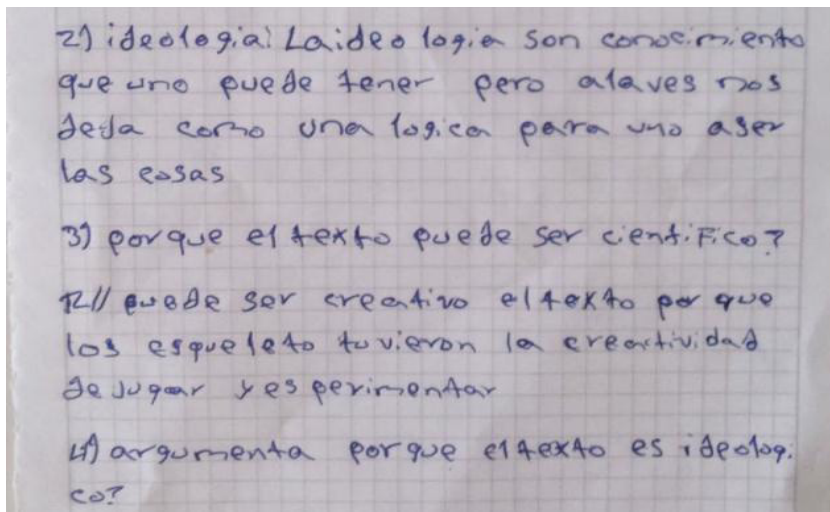 2) ideologia: La ideologia son conocimiento
que uno puede tener pero alaves nos
deja como una logica para uno aser
las cosas
3) porque el texto puede ser cientifico?
R// puede ser creativo el texto por que
los esqueleto tuvieron la creatividad
de jugar y esperimentar
4) argumenta porque el texto es ideologi
co?